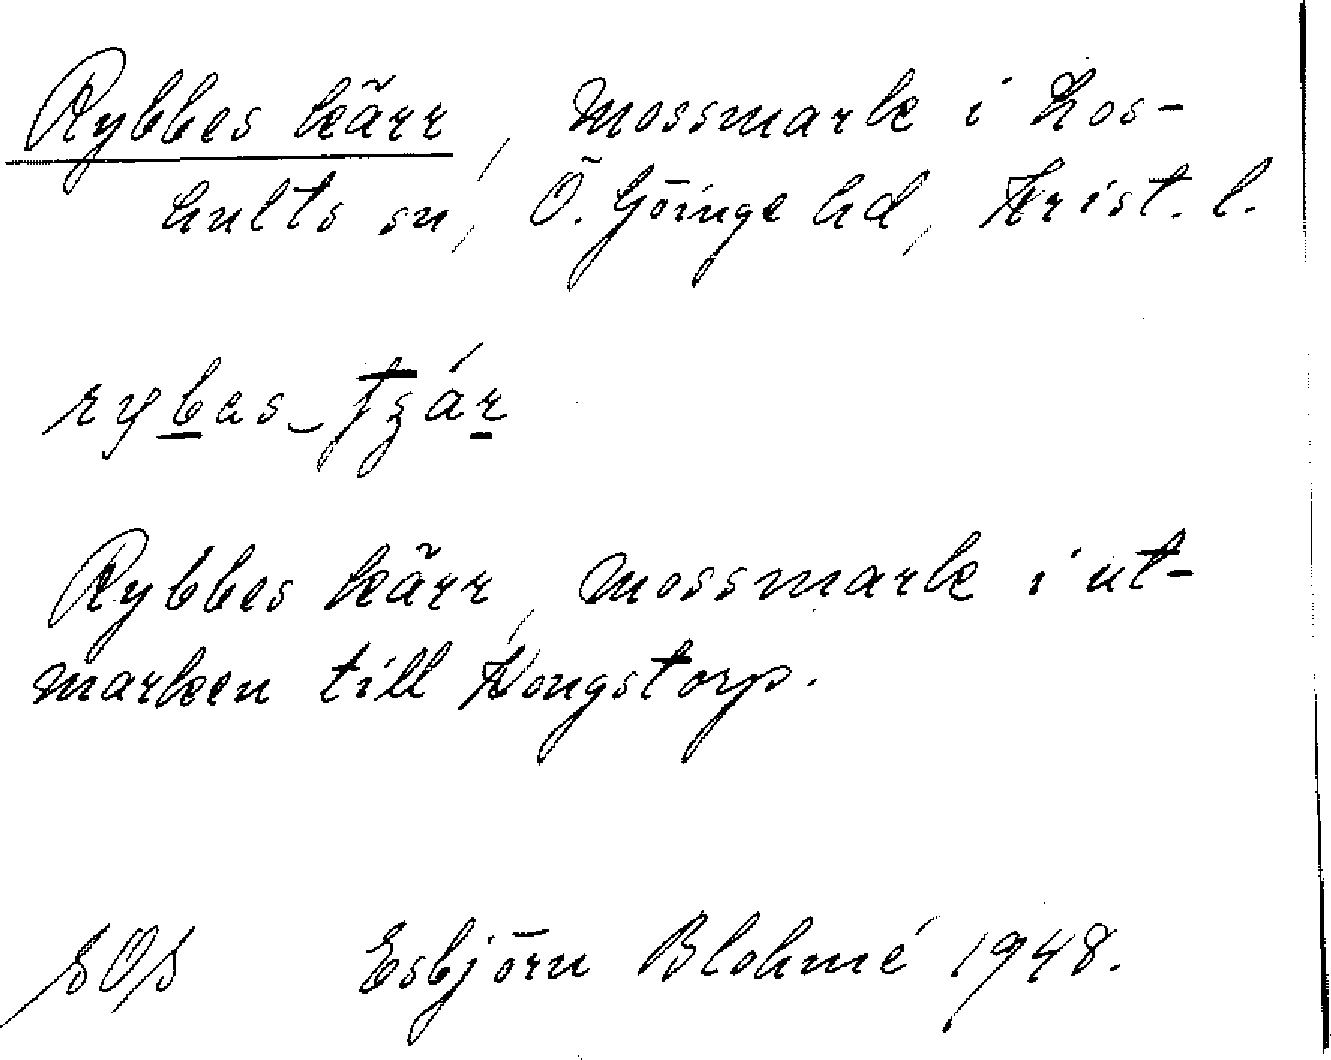 Rybbes kärr, Mossmark i Los-
hults sn, Ö. Göinge hd, Krist. l.
rybas_tʒár
Rybbes kärr, Mossmark i ut-
marken till Kongstorp.
SOS Esbjörn Blohmé 1948.